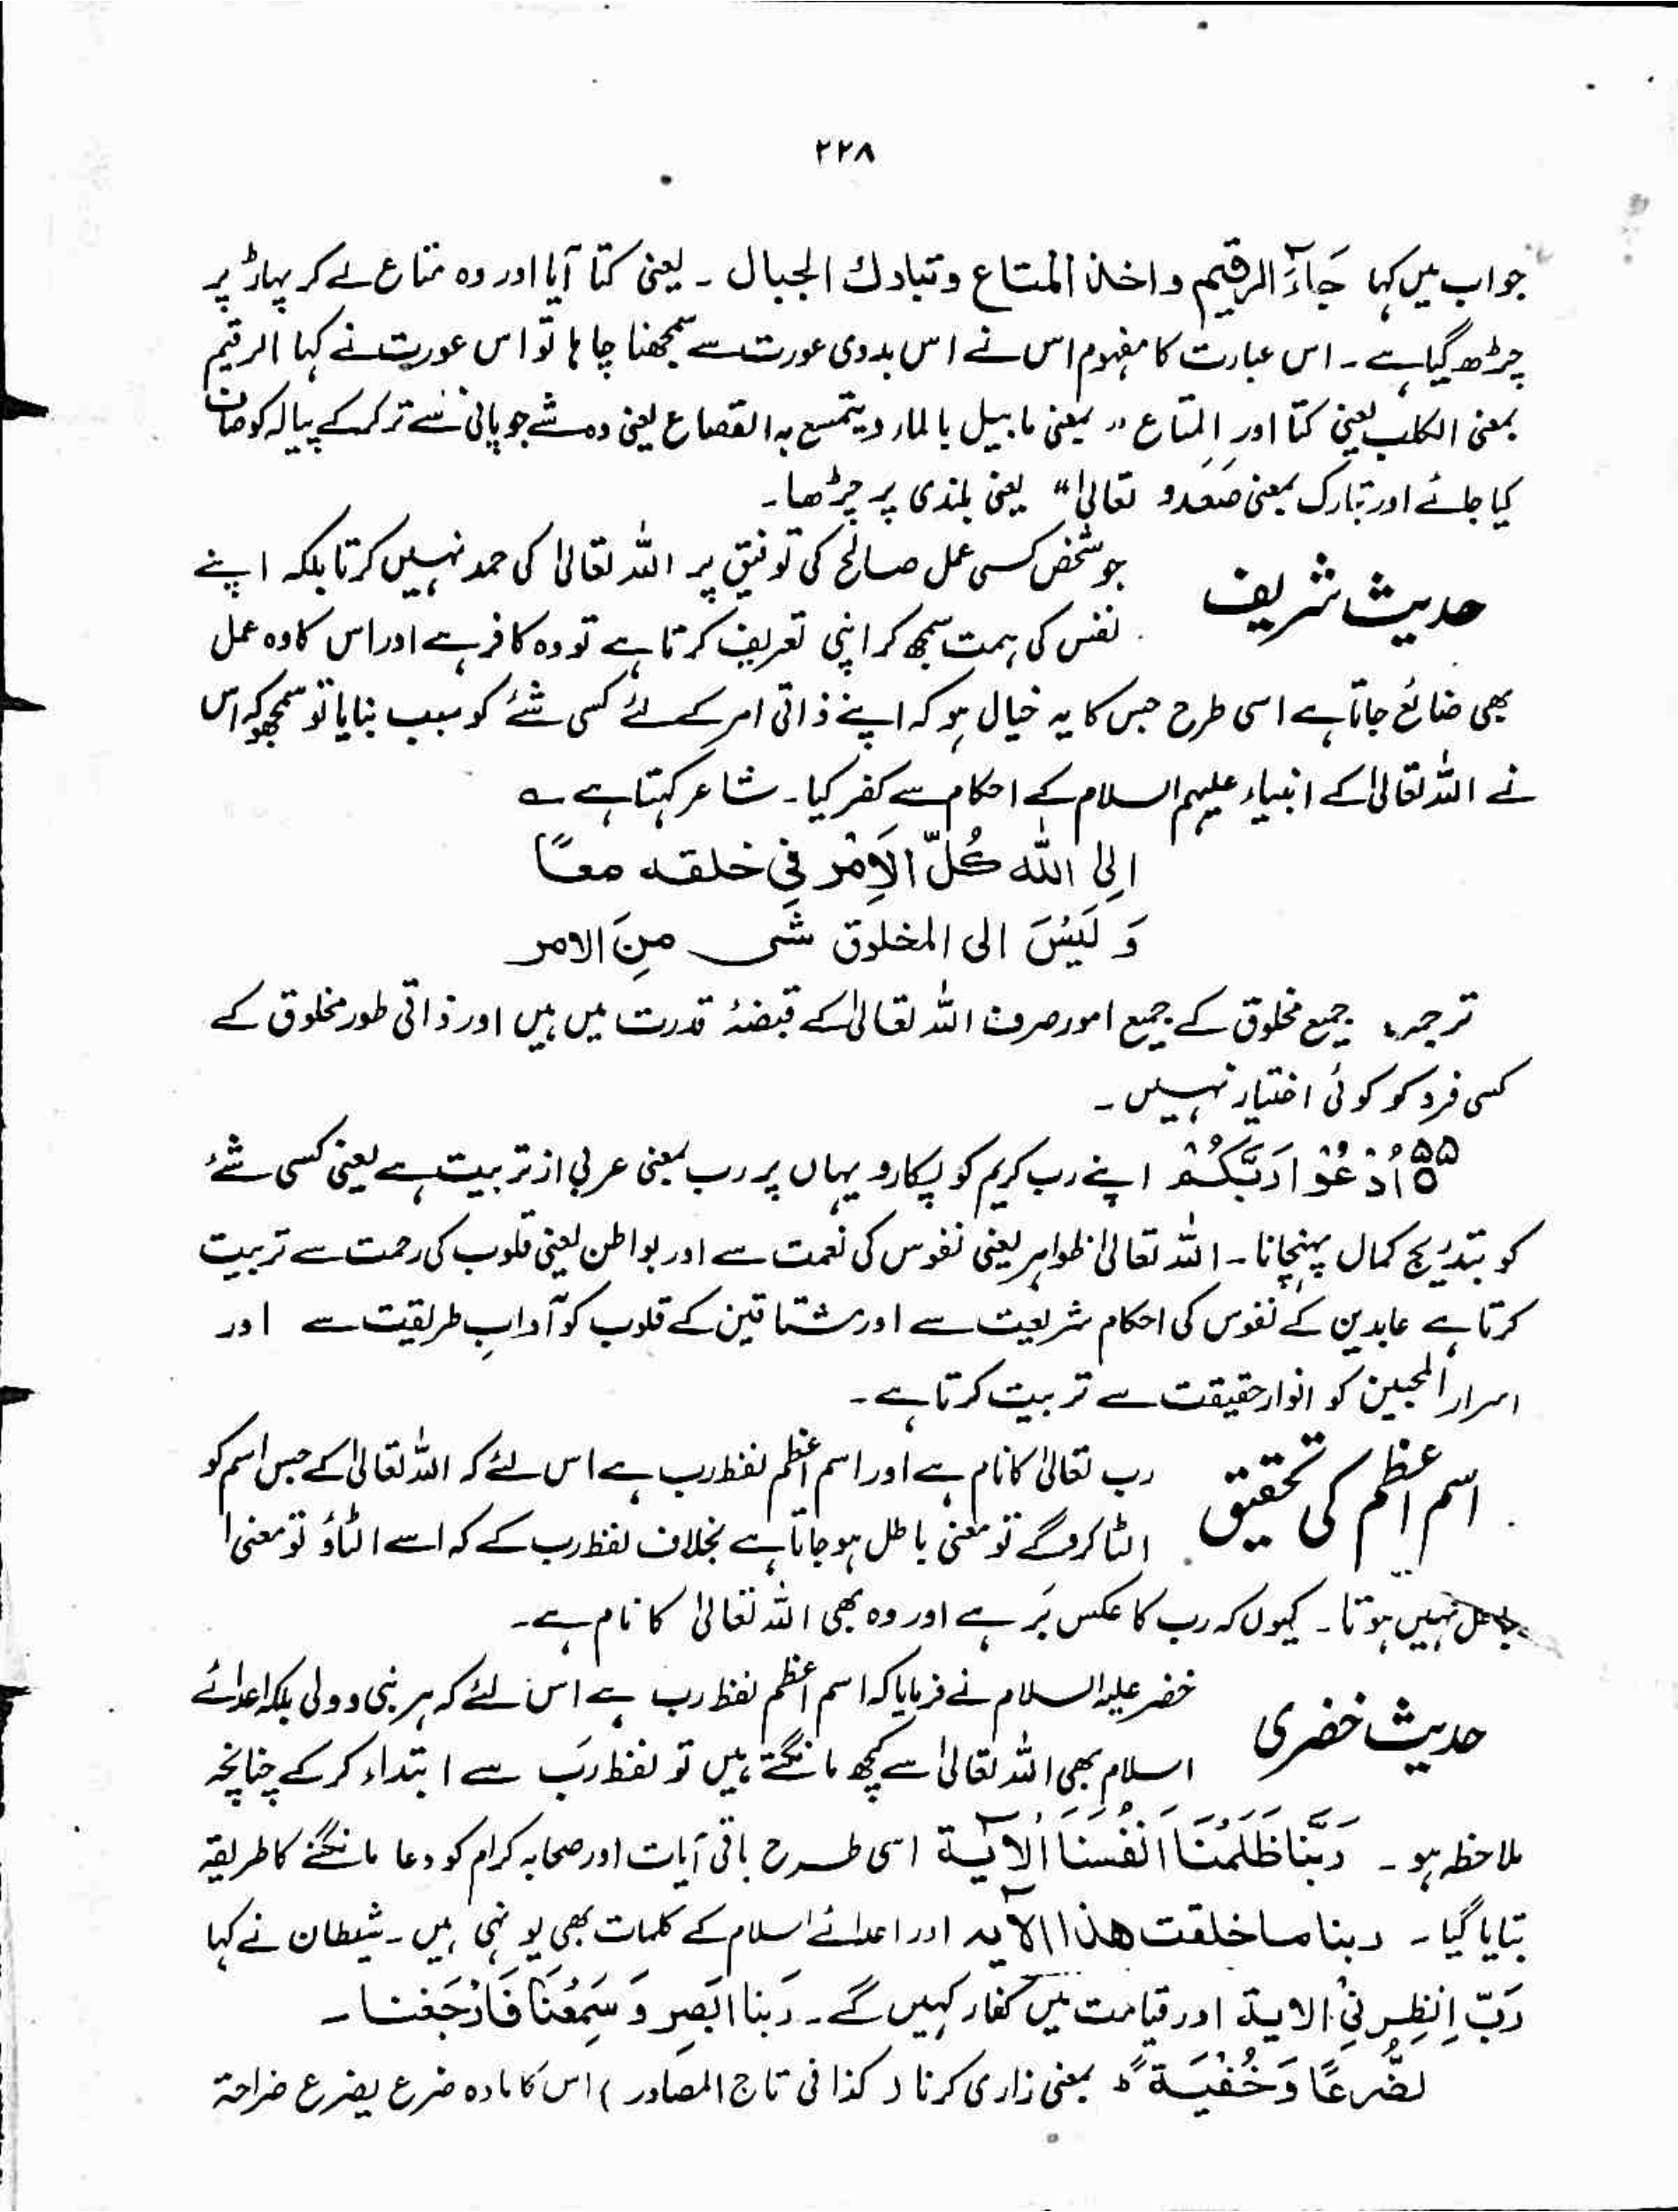 ۲۲۸
جواب میں کہا جَآءَ الرقیم واخذ المتاع وتبارك الجبال ۔ یعنی کتا آیا اور وہ متاع لے کر پہاڑ پر
چڑھ گیا ہے ۔ اس عبارت کا مفہوم اس نے اس بدوی عورت سے سمجھنا چاہا تو اس عورت نے کہا الرقیم
بمعنی الکلب یعنی کتا اور المتاع " بمعنی ما یبیل بالماء ویتمسح به القصاع یعنی وہ شے جو پانی سے تر کر کے پیالہ کو صاف
کیا جائے اور تبارک بمعنی صَعَدو تعالیٰ " یعنی بلندی پر چڑھا ۔
حدیث شریف
جو شخص کسی عمل صالح کی توفیق پر اللہ تعالیٰ کی حمد نہیں کرتا بلکہ اپنے
نفس کی ہمت سمجھ کر اپنی تعریف کرتا ہے تو وہ کافر ہے اور اس کا وہ عمل
بھی ضائع جاتا ہے اسی طرح جس کا یہ خیال ہو کہ اپنے ذاتی امر کے لئے کسی شئے کو سبب بنایا تو سمجھو کہ اس
نے اللہ تعالیٰ کے انبیاء علیہم السلام کے احکام سے کفر کیا ۔ شاعر کہتا ہے ؎
اِلی اللّٰه کُلّ الاَمْر فِی خلقه معًا
وَ لَیْسَ الی المخلوق شی مِنَ الامر
ترجمہ: جمیع مخلوق کے جمیع امور صرف اللہ تعالیٰ کے قبضۂ قدرت میں ہیں اور ذاتی طور مخلوق کے
کسی فرد کو کوئی اختیار نہیں ۔
۵۵ اُدْعُوْا رَبَّكُمْ اپنے رب کریم کو پکارو یہاں پر رب بمعنی عربی از تربیت ہے یعنی کسی شئے
کو بتدریج کمال پہنچانا ۔ اللہ تعالیٰ ظواہر یعنی نفوس کی نعمت سے اور بواطن یعنی قلوب کی رحمت سے تربیت
کرتا ہے عابدین کے نفوس کی احکام شریعت سے اور مشتاقین کے قلوب کو آدابِ طریقیت سے اور
اسرار المحبین کو انوار حقیقت سے تربیت کرتا ہے ۔
اسم اعظم کی تحقیق
رب تعالیٰ کا نام ہے اور اسم اعظم لفظ رب ہے اس لئے کہ اللہ تعالیٰ کے جس اسم کو
الٹا کرو گے تو معنی باطل ہو جاتا ہے بخلاف لفظ رب کے کہ اسے الٹاؤ تو معنی
باطل نہیں ہوتا ۔ کیوں کہ رب کا عکس بَر ہے اور وہ بھی اللہ تعالیٰ کا نام ہے ۔
حدیث خضری
خضر علیہ السلام نے فرمایا کہ اسم اعظم لفظ رب ہے اس لئے کہ ہر نبی و ولی بلکہ اعدائے
اسلام بھی اللہ تعالیٰ سے کچھ مانگتے ہیں تو لفظ رَب سے ابتداء کر کے چنانچہ
ملاحظہ ہو ۔ رَبَّنَا ظَلَمْنَا اَنْفُسَنَا اَلآیة اسی طرح باقی آیات اور صحابہ کرام کو دعا مانگنے کا طریقہ
بتایا گیا ۔ ربنا ما خلقت هذا الآیه اور اعدائے اسلام کے کلمات بھی یونہی ہیں ۔ شیطان نے کہا
رَبّ اِنظِرنِیْ الایة اور قیامت میں کفار کہیں گے ۔ رَبنا ابَصِر وَ سَمِعْنَا فَارْجَعْنا ۔
تضُّرعًا وَخُفْیَةً ط بمعنی زاری کرنا ( کذا فی تاج المصادر ) اس کا مادہ ضرع یضرع ضراحة